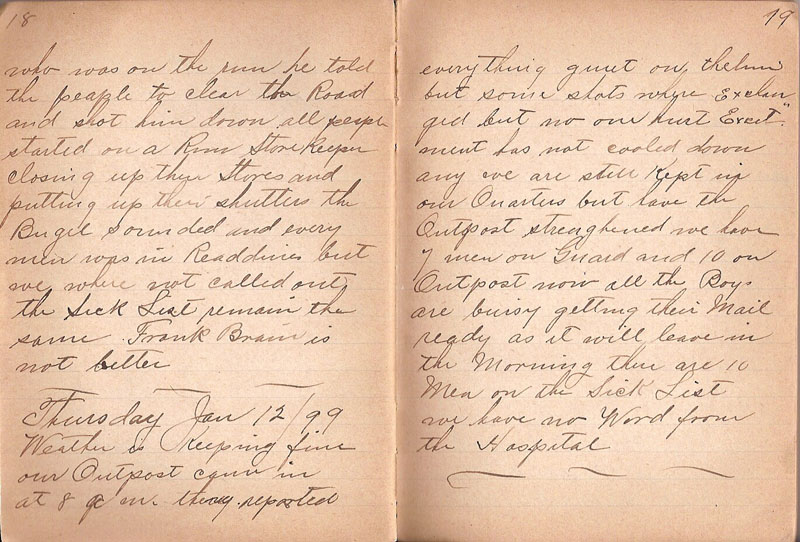 18
who was on the run he told
the peaple to clear the Road
and shot him down all peeple
started on a Run Store Keeper
closing up their Stores and
putting up their shutters the
Bugel sounded and every
men was in Readdines but
we where not called out
the Sick List remain the
same. Frank Brain is
not better
Thursday Jan 12/99
Weather is Keeping fine
our Outpost came in
at 8 a m. they reported
19
everything quiet on the line
but some shots where Exchan
ged but no one hurt Excit"
ment has not cooled down
any we are still Kept in
our Quarters but have the
Outpost strengthened we have
7 men on Guard and 10 on
Outpost now all the Boys
are buisy getting their Mail
ready as it will leave in
the Morning ther are 10
Men on the Sick List
we have no Word from
the Hospital